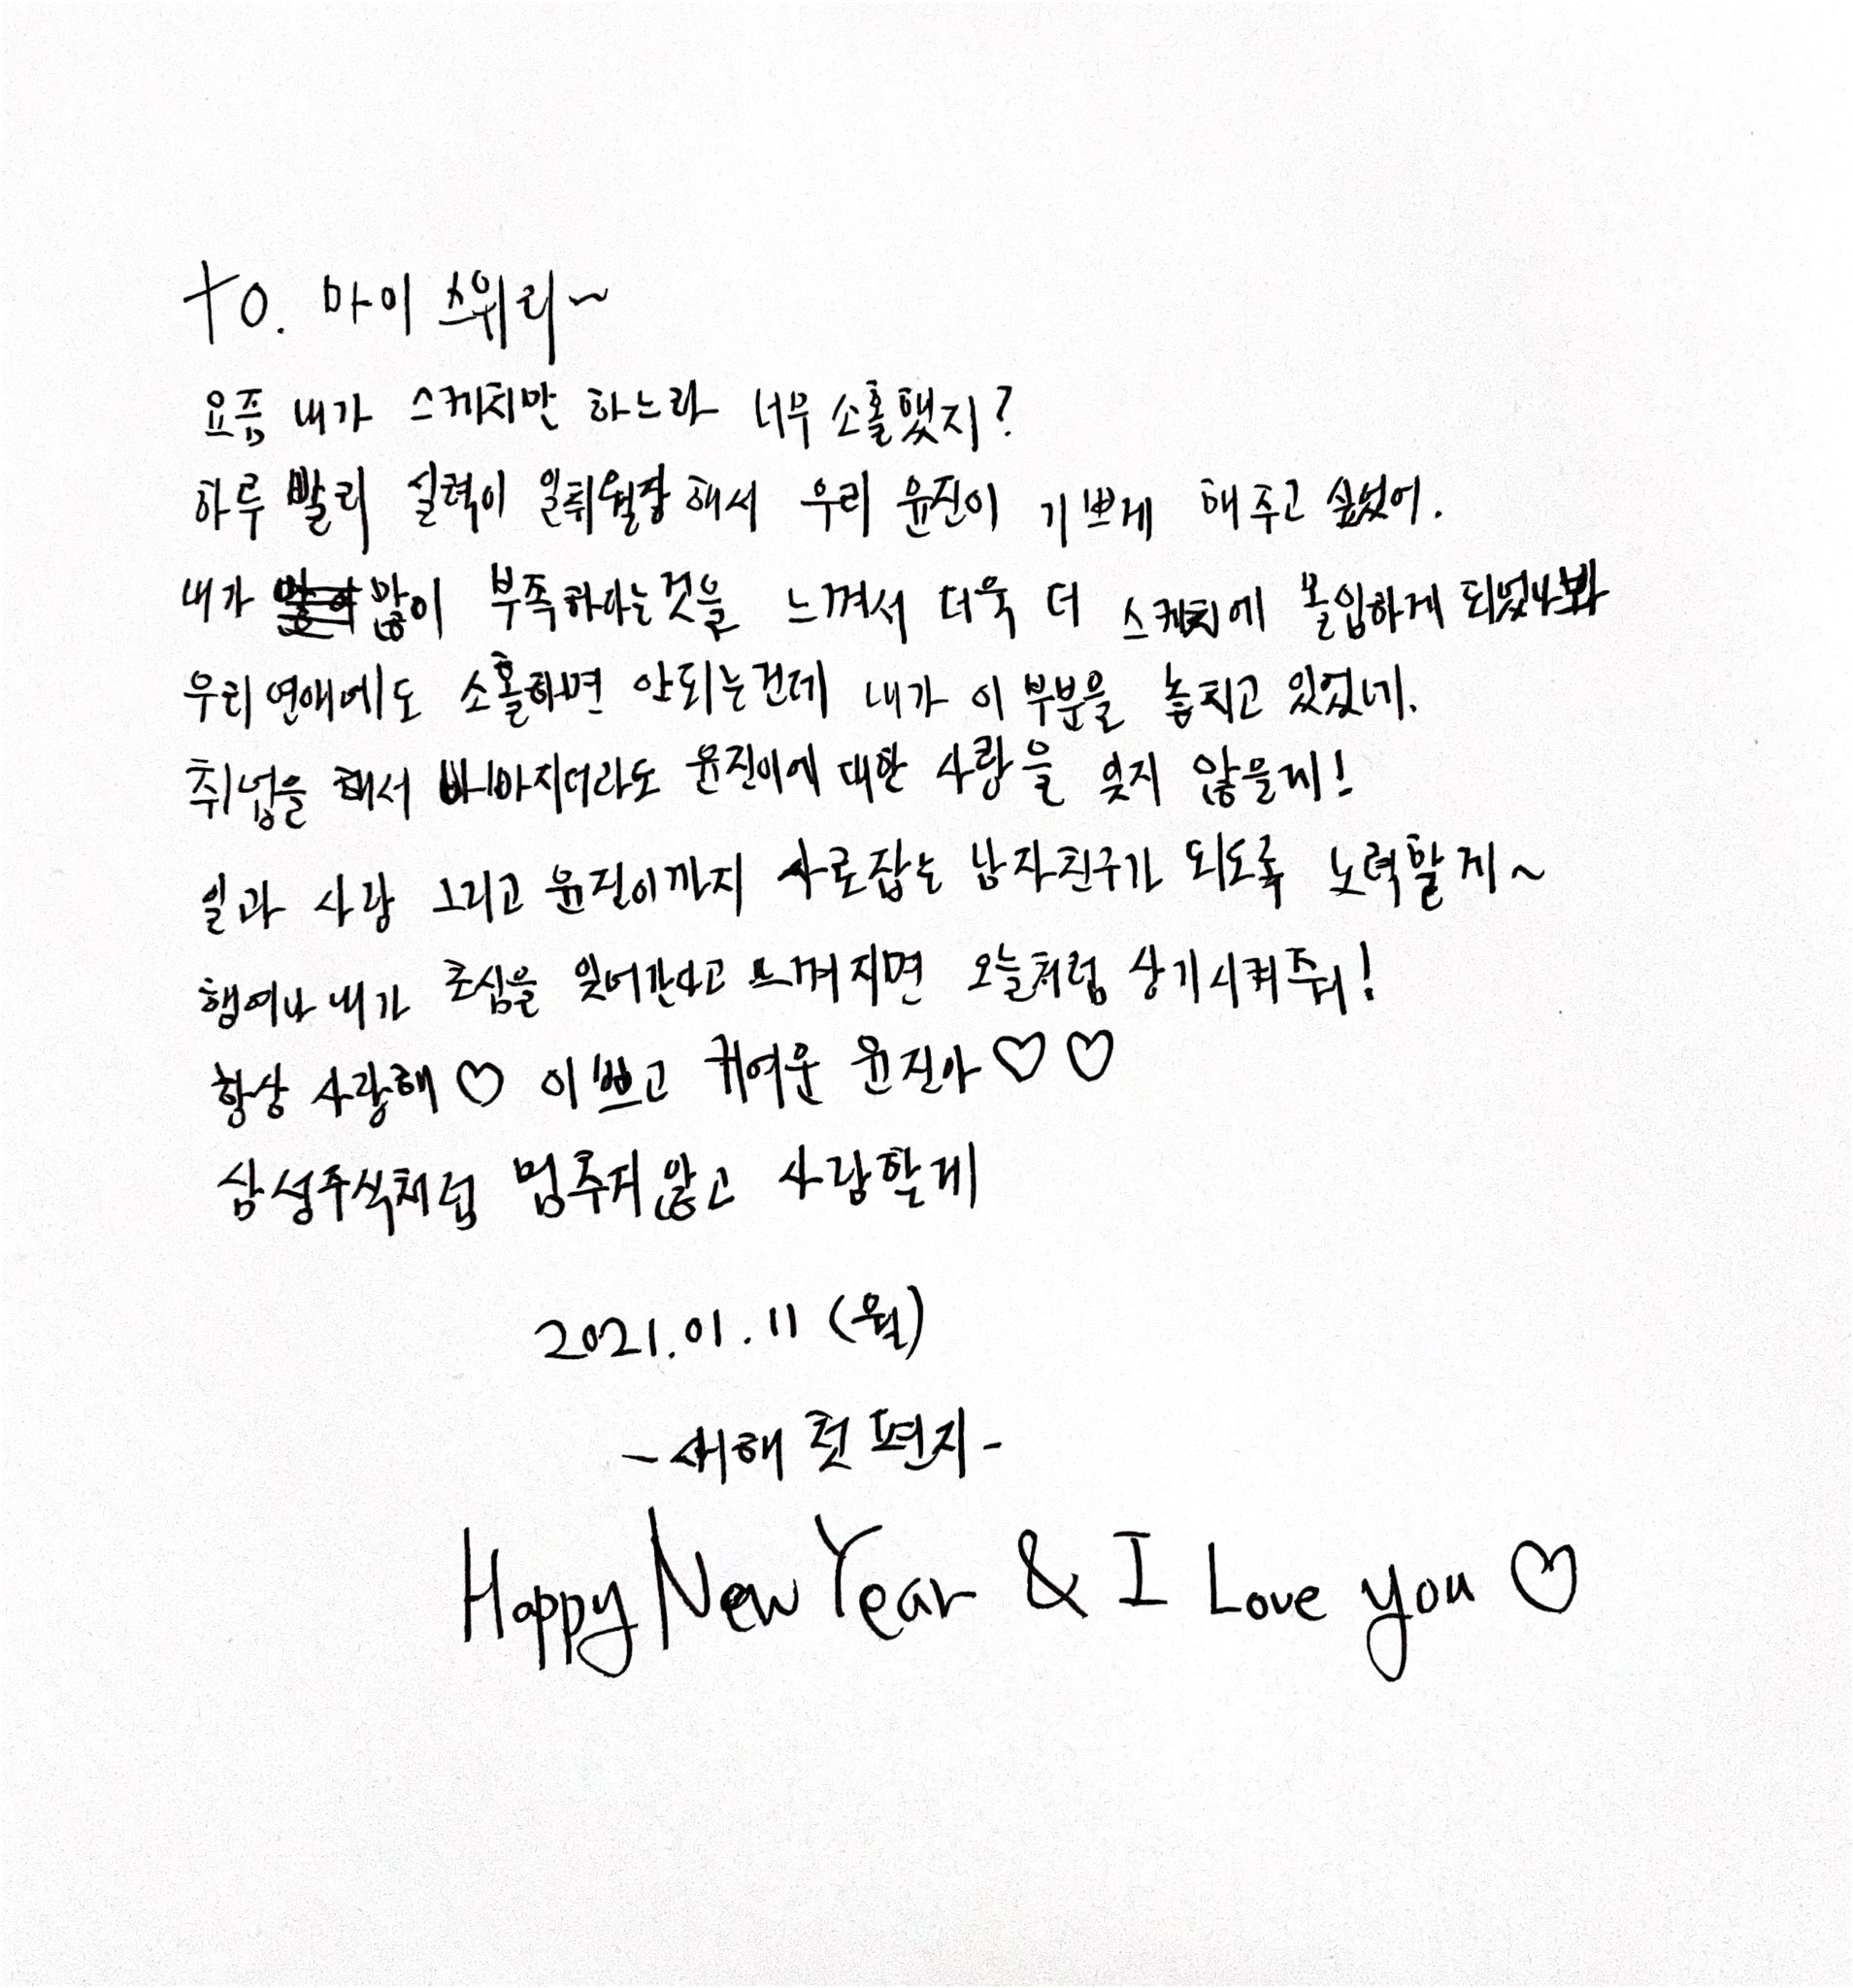 to. 마이 스위리~
요즘 내가 스케치만 하느라 너무 소홀했지?
하루 빨리 실력이 일취월장해서 우리 윤진이 기쁘게 해주고 싶었어.
내가 많이 부족하다는것을 느껴서 더욱 더 스케치에 몰입하게 되었나봐
우리 연애에도 소홀하면 안되는건데 내가 이 부분을 놓치고 있었네.
취업을 해서 바빠지더라도 윤진이에 대한 사랑을 잊지 않을게!
일과 사랑 그리고 윤진이까지 사로잡는 남자친구가 되도록 노력할게~
행여나 내가 초심을 잊어간다고 느껴지면 오늘처럼 상기시켜줘!
항상 사랑해♡ 이쁘고 귀여운 윤진아♡♡
삼성주식처럼 멈추지않고 사랑할게
2021.01.11 (월)
-새해 첫 편지-
Happy New Year & I Love you ♡